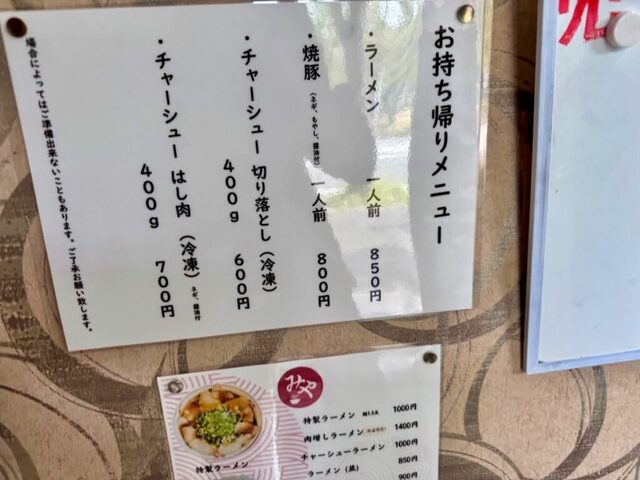 お持ち帰りメニュー
・ラーメン 一人前 850円
・焼豚（ネギ、もやし、醤油付）一人前 800円
・チャーシュー 切り落とし（冷凍）
400g 600円
・チャーシュー はし肉（冷凍）ネギ、醤油付
400g 700円
場合によってはご準備出来ないこともあります。ご了承お願い致します。
みや
特製ラーメン
特製ラーメン 1000円
肉増しラーメン 1400円
チャーシューラーメン 1000円
ラーメン 850円
900円